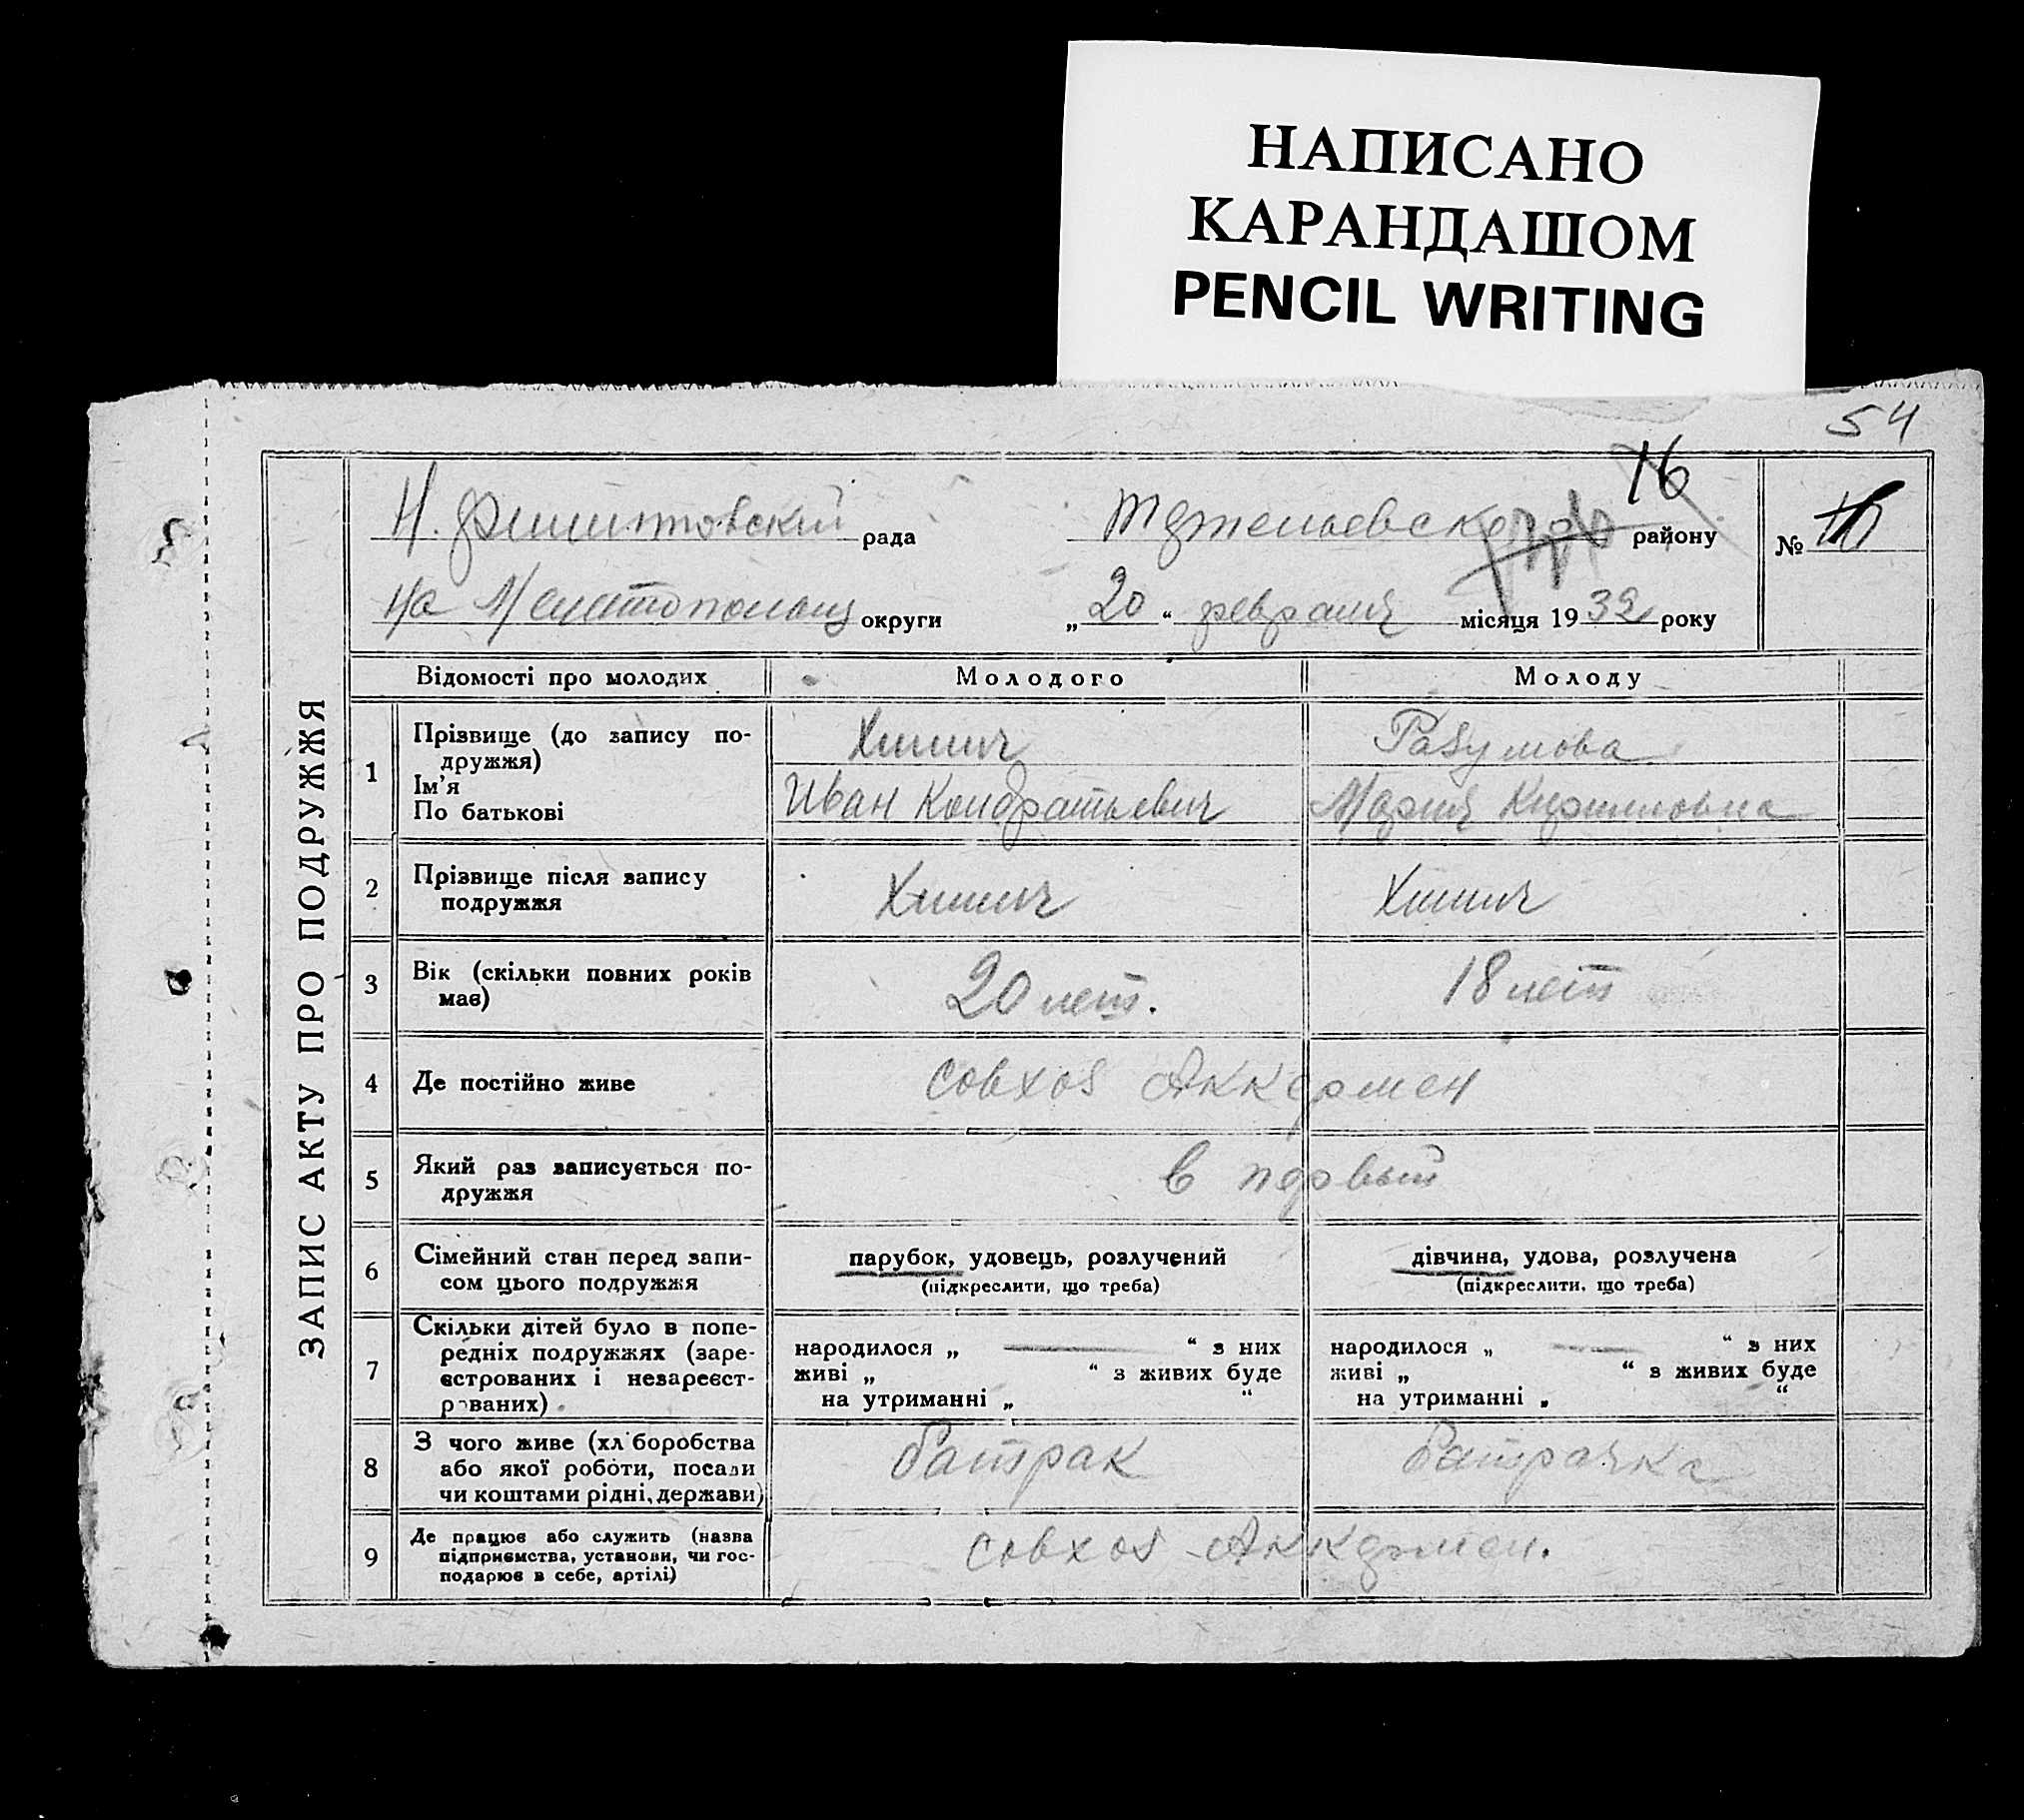 НАПИСАНО
КАРАНДАШОМ
PENCIL WRITING
54
16
Н. рада району №
На округи „20“ февраля місяця 1932 року
ЗАПИС АКТУ ПРО ПОДРУЖЖЯ
Відомості про молодих Молодого Молоду
1 Прізвище (до запису по-
дружжя)
Ім'я
По батькові
Разумова
Иван Кондратьевич Мария Кирилловна
2 Прізвище після запису
подружжя
3 Вік (скільки повних років
має)
20 лет. 18 лет
4 Де постійно живе совхоз Аккермен
5 Який раз записується по-
дружжя
в первый
6 Сімейний стан перед запи-
сом цього подружжя
парубок, удовець, розлучений дівчина, удова, розлучена
(підкреслити, що треба) (підкреслити, що треба)
7 Скільки дітей було в попе-
редніх подружжях (заре-
єстрованих і незареєст-
рованих)
народилося „ — “ з них народилося „ — “ з них
живі „ “ з живих буде живі „ “ з живих буде
на утриманні „ “ на утриманні „ “
8 З чого живе (хліборобства
або якої роботи, посади
чи коштами рідні, держави)
батрак батрачка
9 Де працює або служить (назва
підприємства, установи, чи гос-
подарює в себе, артілі)
совхоз Аккермен.